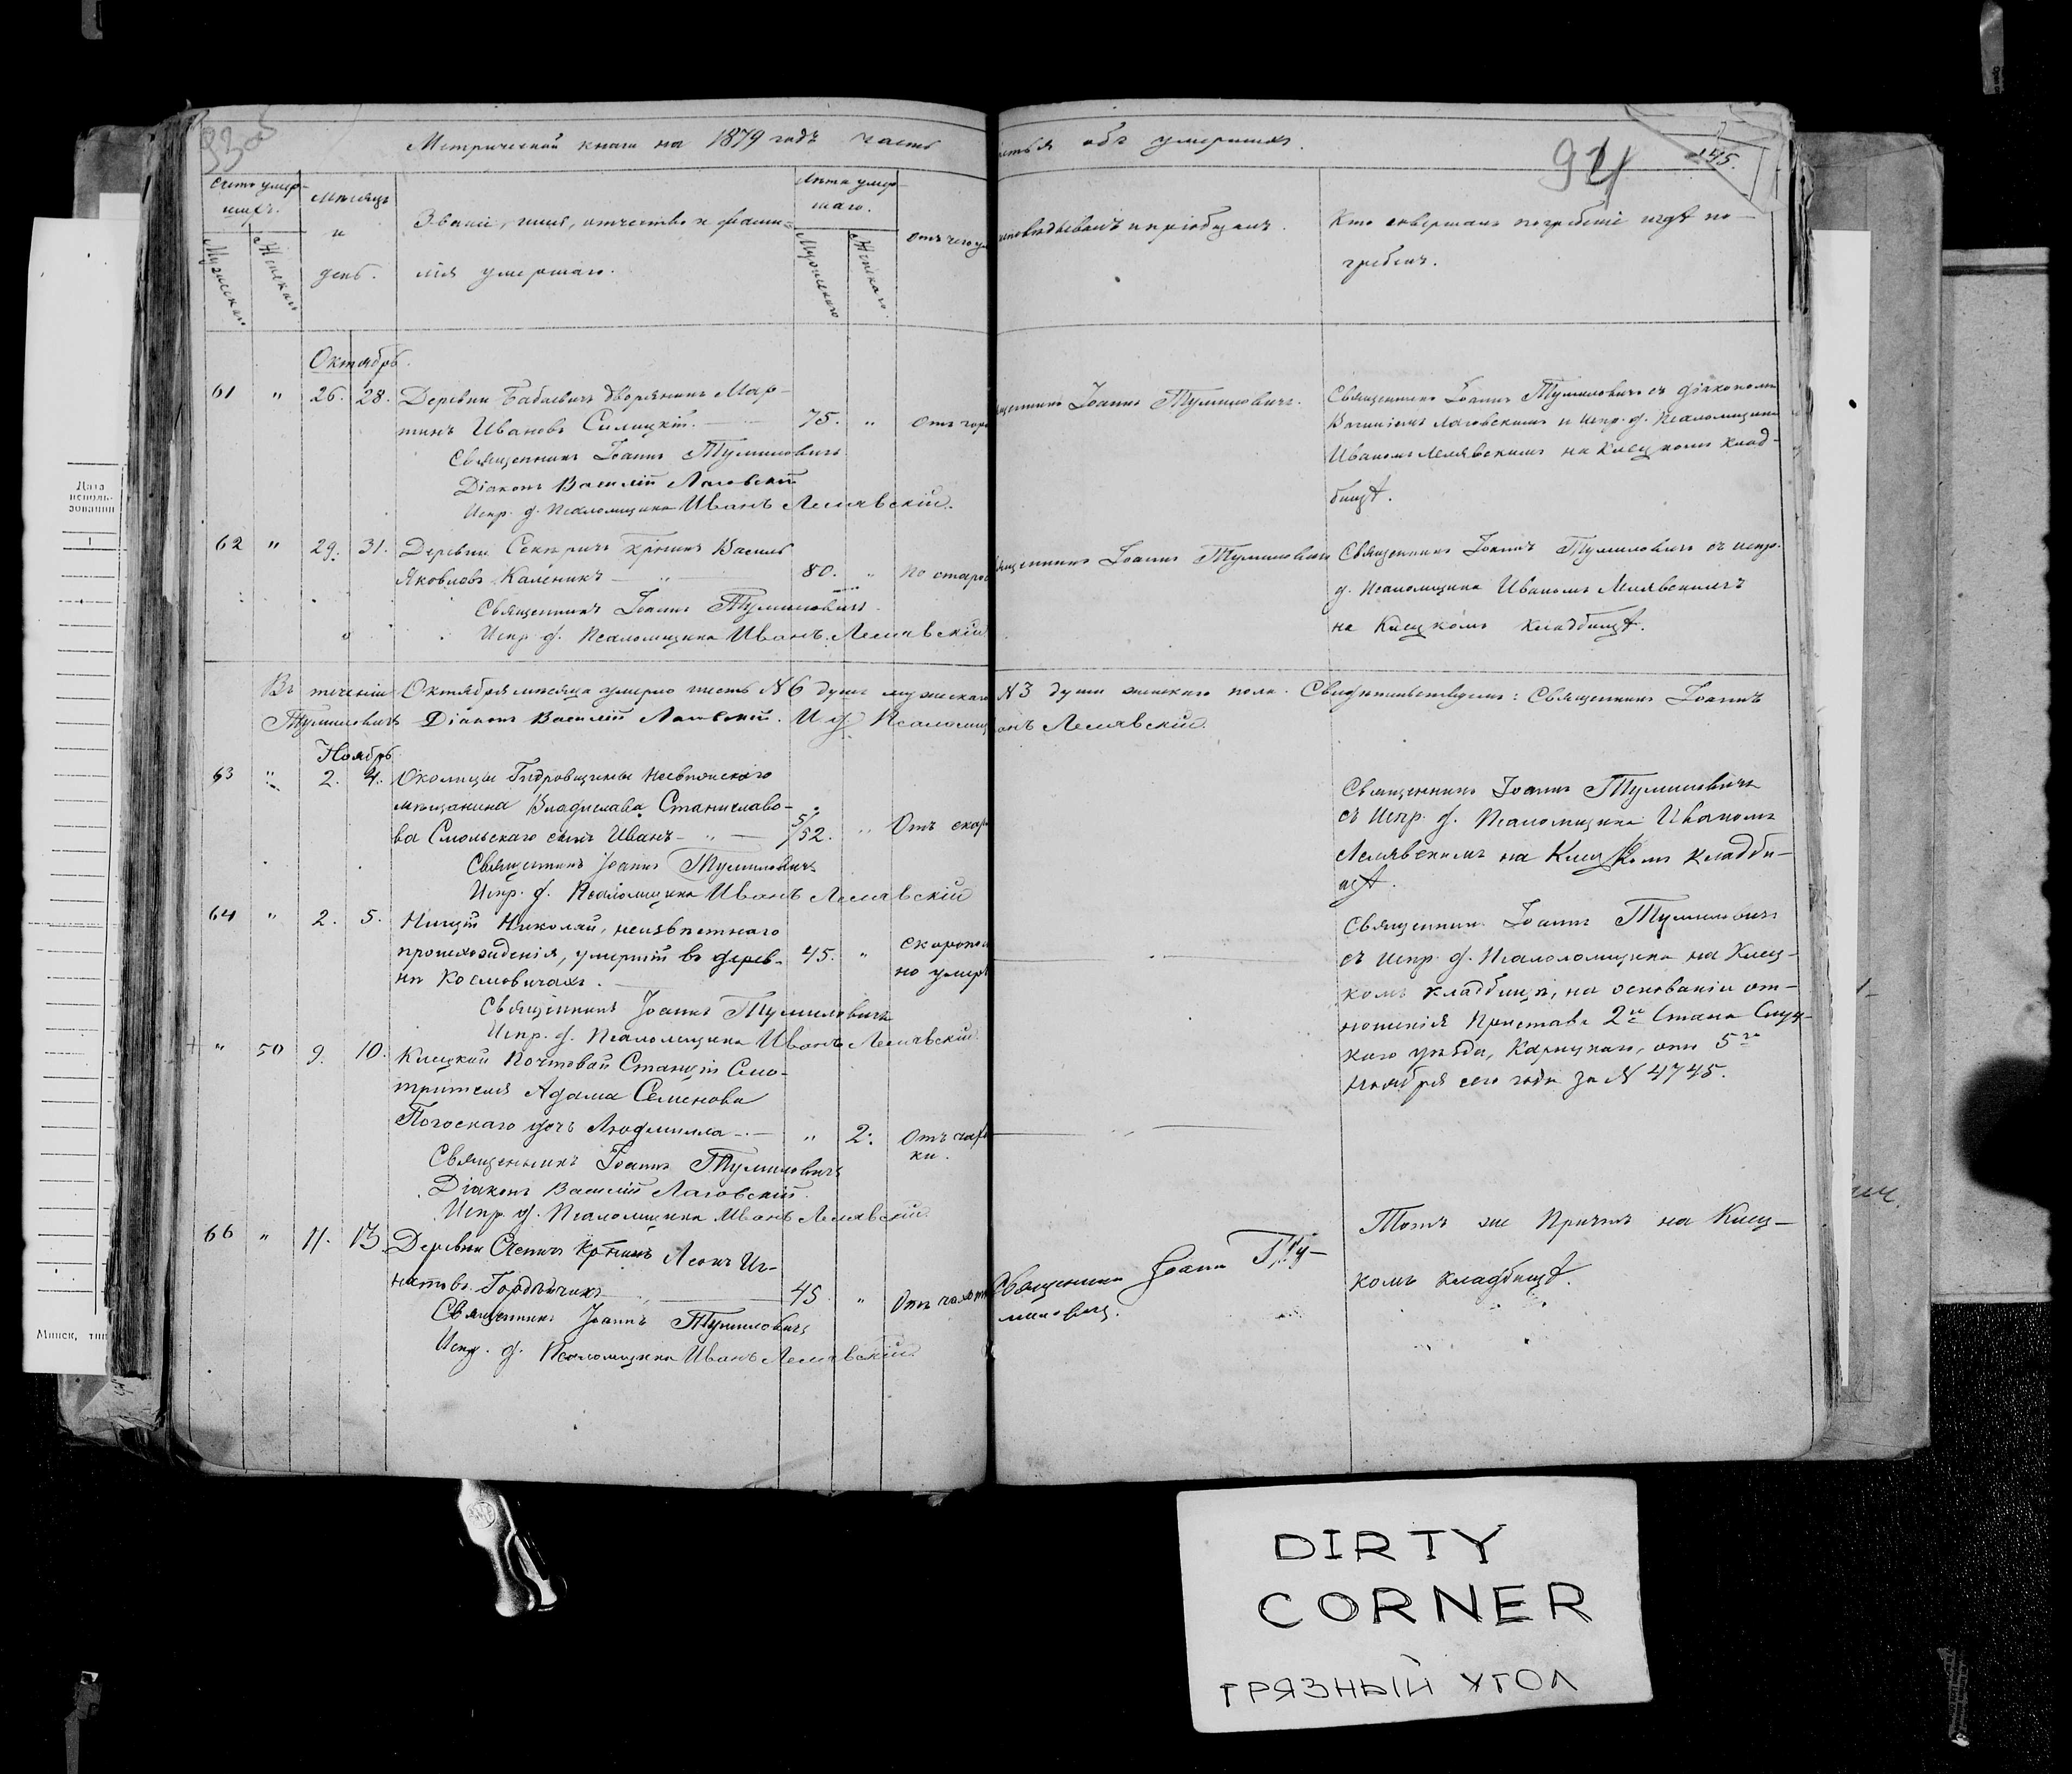 93 об
Метрической книги на 1879 годъ часть
третья объ умершихъ.
94
145.
Счетъ умер-
шихъ.
Мужескаго
Женскаго
Мѣсяцъ
и
день.
Званіе, имя, отчество и фами-
лія умершаго.
Лѣта умер-
шаго.
Мужескаго
Женскаго.
Отъ чего
исповѣдывалъ и пріобщалъ.
Кто совершалъ погребеніе и гдѣ по-
гребенъ.
Октябрь.
61 " 26. 28. Деревни Бабаевичъ дворянинъ Мар-
тинъ Ивановъ Силицкій. 75. " Отъ
Священникъ Іоаннъ Тумиловичъ
Діаконъ Василій Лаговскій
Испр. д. Псаломщика Иванъ Лелявскій.
Іоаннъ Тумиловичъ.
Священникъ Іоаннъ Тумиловичъ съ діакономъ
Василіемъ Лаговскимъ и испр. д. Псаломщика
Иваномъ Лелявскимъ на Клецкомъ клад-
бищѣ.
62 " 29. 31. Деревни кр-нинъ Василь
Яковловъ Каленикъ 80. " По
Священникъ Іоаннъ Тумиловичъ.
Испр. д. Псаломщика Иванъ Лелявскій
Іоаннъ Тумиловичъ
Священникъ Іоаннъ Тумиловичъ съ испр.
д. Псаломщика Иваномъ Лелявскимъ
на Клецкомъ кладбищѣ.
Въ теченіи Октября мѣсяца умерло шесть N 6 душъ мужескаго N 3 души женскаго пола. Свидѣтельствуемъ: Священникъ Іоаннъ
Тумиловичъ Діаконъ Василій Лаговскій. И д Псаломщ Лелявскій.
Ноябрь
63 " 2. 4. Околицы Гидровщины Несвижскаго
мѣщанина Владислава Станиславо-
ва Смольскаго сынъ Иванъ 5/52. " Отъ
Священникъ Іоаннъ Тумиловичъ
Испр. д. Псаломщика Иванъ Лелявскій
Священникъ Іоаннъ Тумиловичъ
съ Испр. д. Псаломщика Иваномъ
Лелявскимъ на Клецкомъ кладби-
щѣ.
64 " 2. 5. Нищій Николай, неизвѣстнаго
происхожденія, умершій въ дерев-
нѣ Космовичахъ. 45. "
Священникъ Іоаннъ Тумиловичъ
Испр. д. Псаломщика Иванъ Лелявскій.
Священникъ Іоаннъ Тумиловичъ
съ испр. д. Псаломщика на Клец-
комъ кладбищѣ, на основаніи от-
ношенія Пристава 2го Стана Слуц-
каго уѣзда, отъ 5го
Ноября сего года за N 4745.
" 50 9. 10. Клецкой Почтовой Станціи Смо-
трителя Адама Семенова
Погоскаго дочь Людмилла " 2. Отъ
ки.
Священникъ Іоаннъ Тумиловичъ
Діаконъ Василій Лаговскій.
Испр. д. Псаломщика Иванъ Лелявскій
66 " 11. 13. Деревни кр-нинъ Леонъ Иг-
натовъ Гордѣйчикъ 45 " Отъ
Священникъ Іоаннъ Тумиловичъ
Испр. д. Псаломщика Иванъ Лелявскій.
Священникъ Іоаннъ Ту-
миловичъ.
Тотъ же Причтъ на Клец-
комъ кладбищѣ.
Дата
исполь-
зования
Минск, тип
DIRTY
CORNER
ГРЯЗНЫЙ УГОЛ